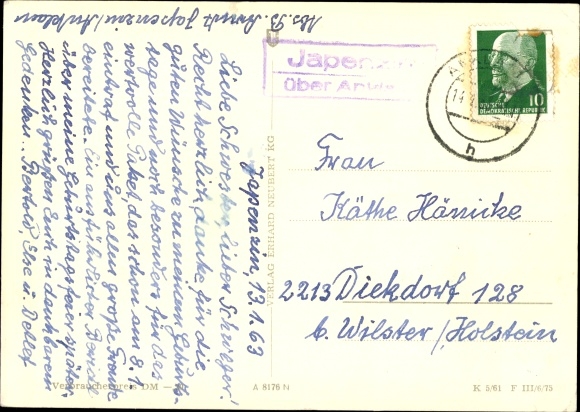 Abs. B. Arndt Japenzin/Anklam
Japenzin, 13.1.63
Liebe Schwester, lieber Schwager!
Recht herzlich danke für die
guten Wünsche zu meinem Geburts-
tage und noch besonders für das
wertvolle Paket, das schon am 8.1
eintraf und uns allen große Freude
bereitete. Ein ausführlicher Bericht
über meine Geburtstagsfeier später.
Herzlich grüßen Euch in dankbarem
Gedenken. Bertold, Else u. Detlef
Japenzin
über Anklam
DEUTSCHE
DEMOKRATISCHE REPUBLIK
10
h
Frau
Käthe Hänicke
2213 Diekdorf 128
b. Wilster/Holstein
VERLAG ERHARD NEUBERT KG
Verbraucherpreis DM
A 8176 N
K 5/61 F III/6/75